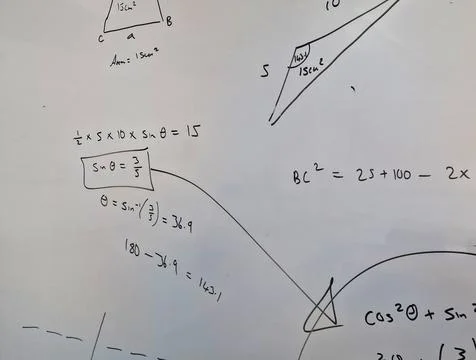 15cm²
C
a
B
Area = 15cm²
10
5
143.1
15cm²
½ × 5 × 10 × sin θ = 15
sin θ = 3/5
θ = sin⁻¹(3/5) = 36.9
180 − 36.9 = 143.1
BC² = 25 + 100 − 2x
cos²θ + sin²